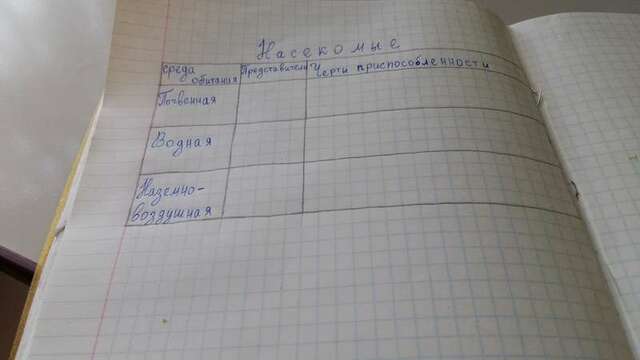 Насекомые
Среда обитания Представители Черты приспособленности
Почвенная
Водная
Наземно-
воздушная